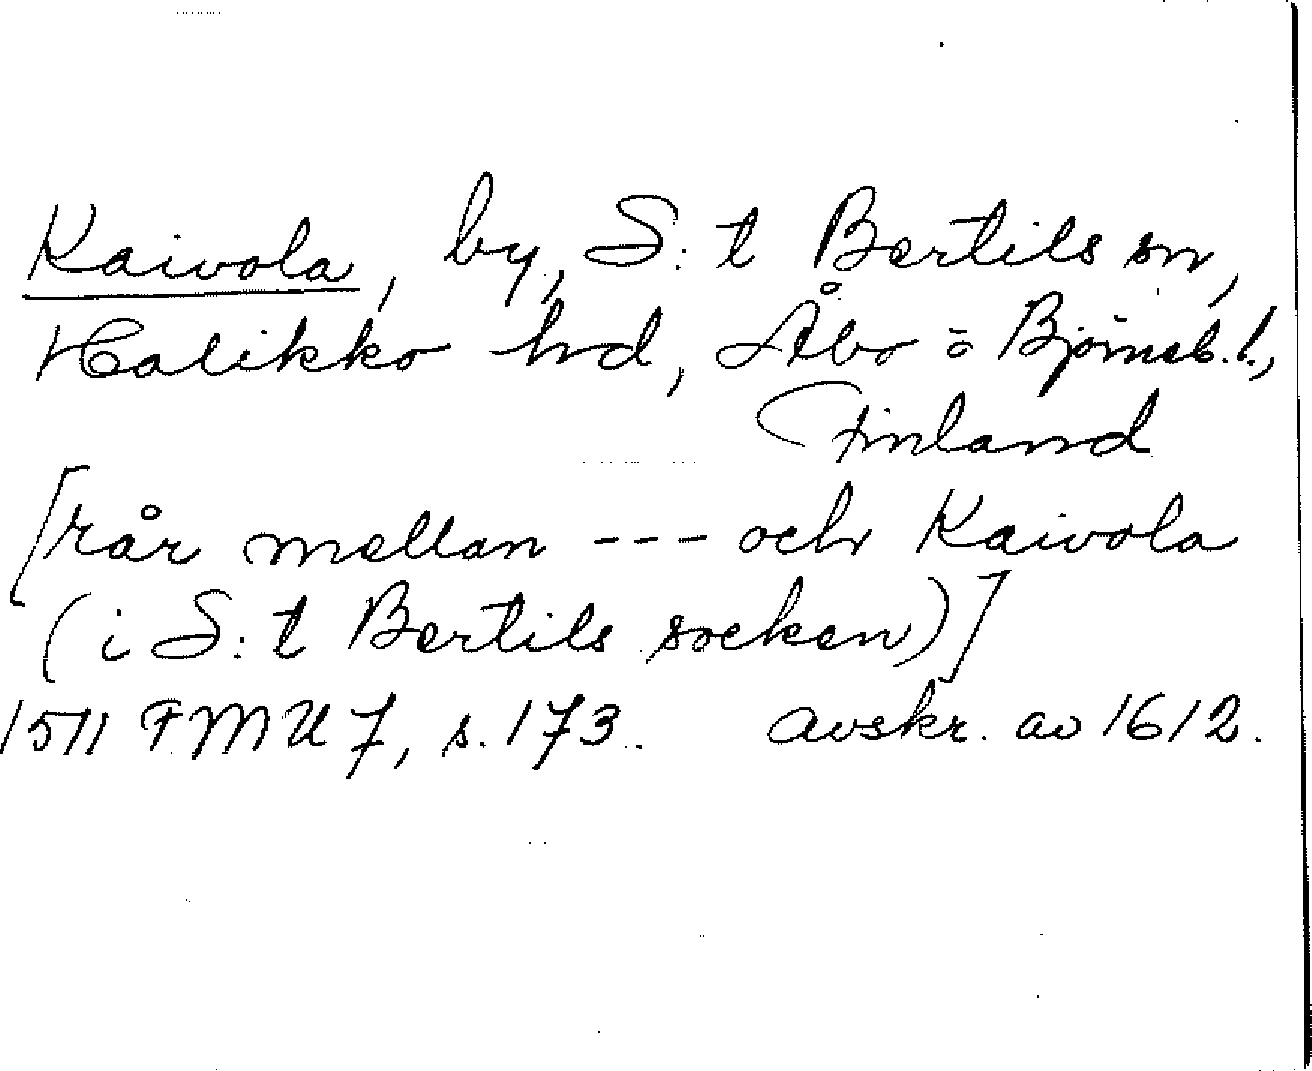 Kaivola, by, S:t Bertils sn,
Halikko hd, Åbo ö Björneb. l.,
Finland
[rår mellan --- och Kaivola
(i S:t Bertils socken)]
1511 FMU 7, s. 173. avskr. av 1612.